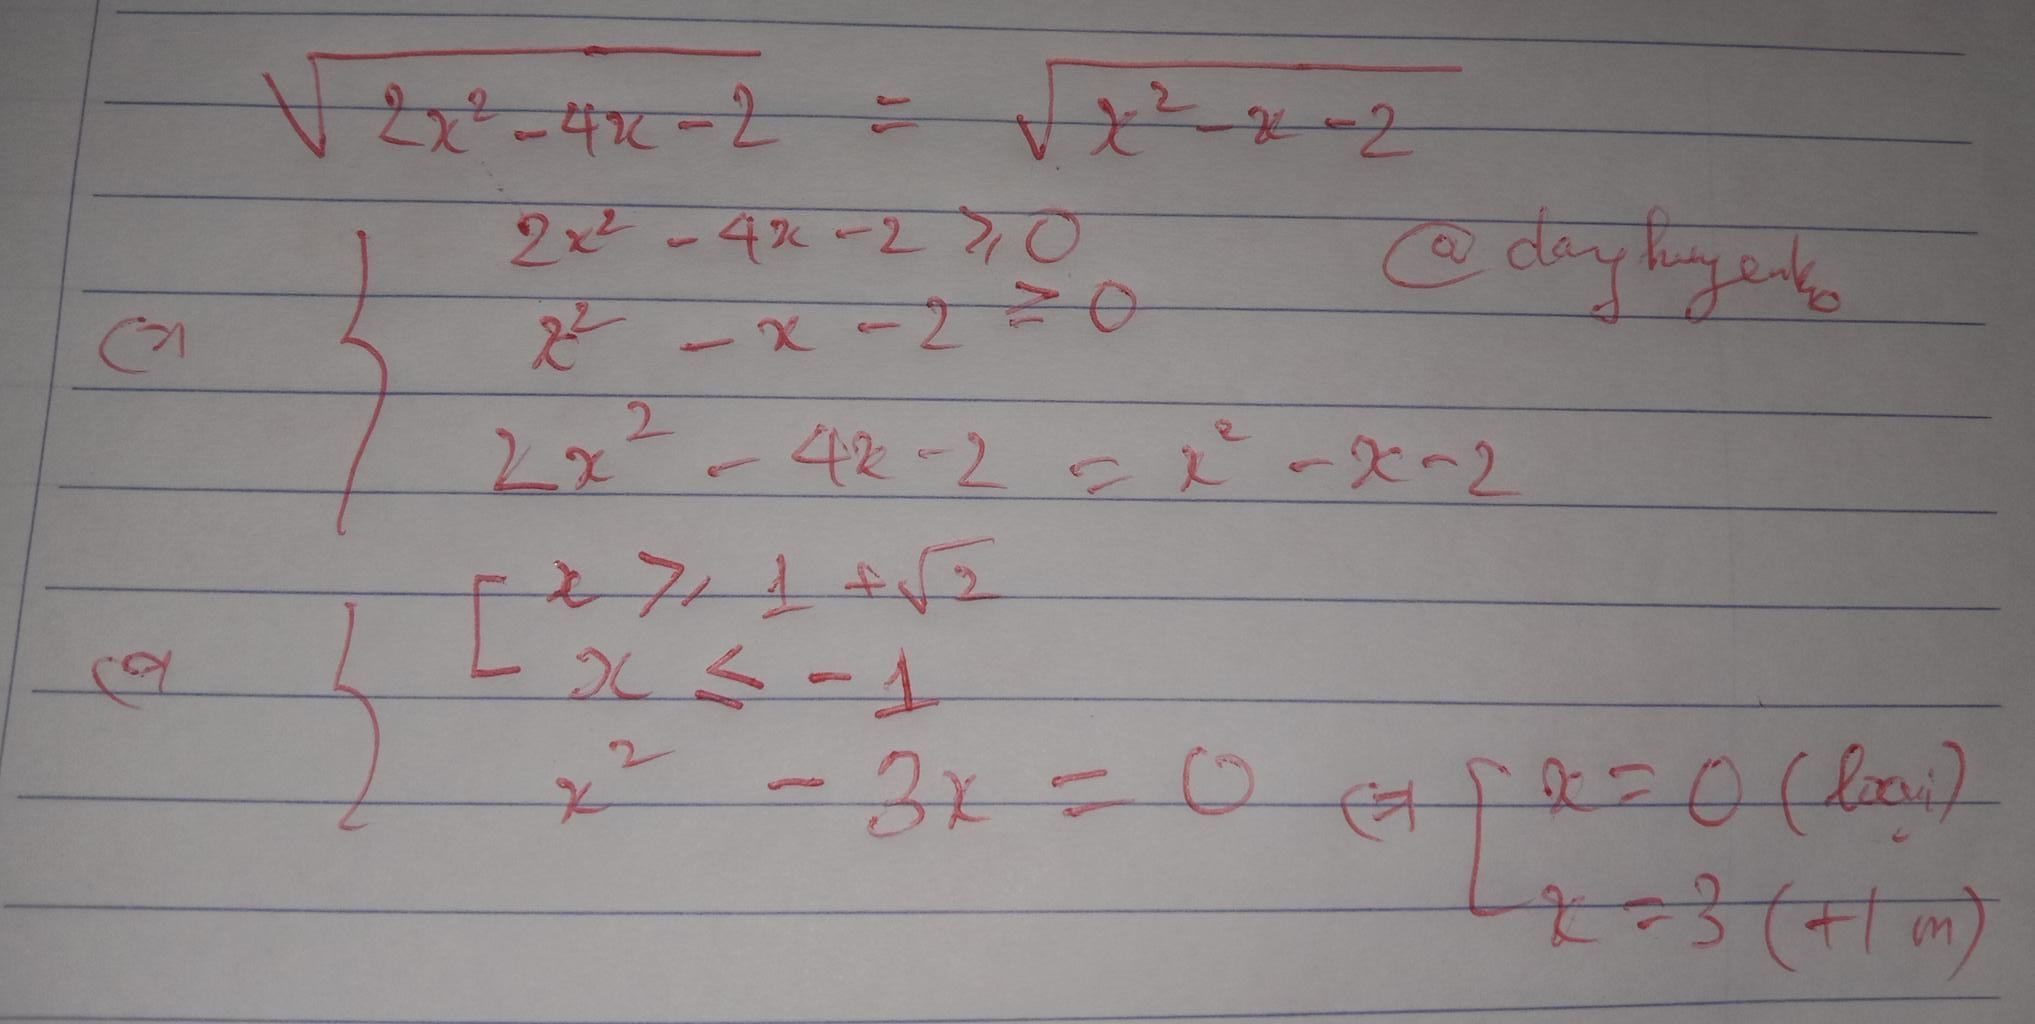 √(2x² - 4x - 2) = √(x² - x - 2)
2x² - 4x - 2 ≥ 0
⇔ { x² - x - 2 ≥ 0
2x² - 4x - 2 = x² - x - 2
[ x ≥ 1 + √2
⇔ { x ≤ -1
x² - 3x = 0 ⇔ [ x = 0 (loại)
x = 3 (t/m)